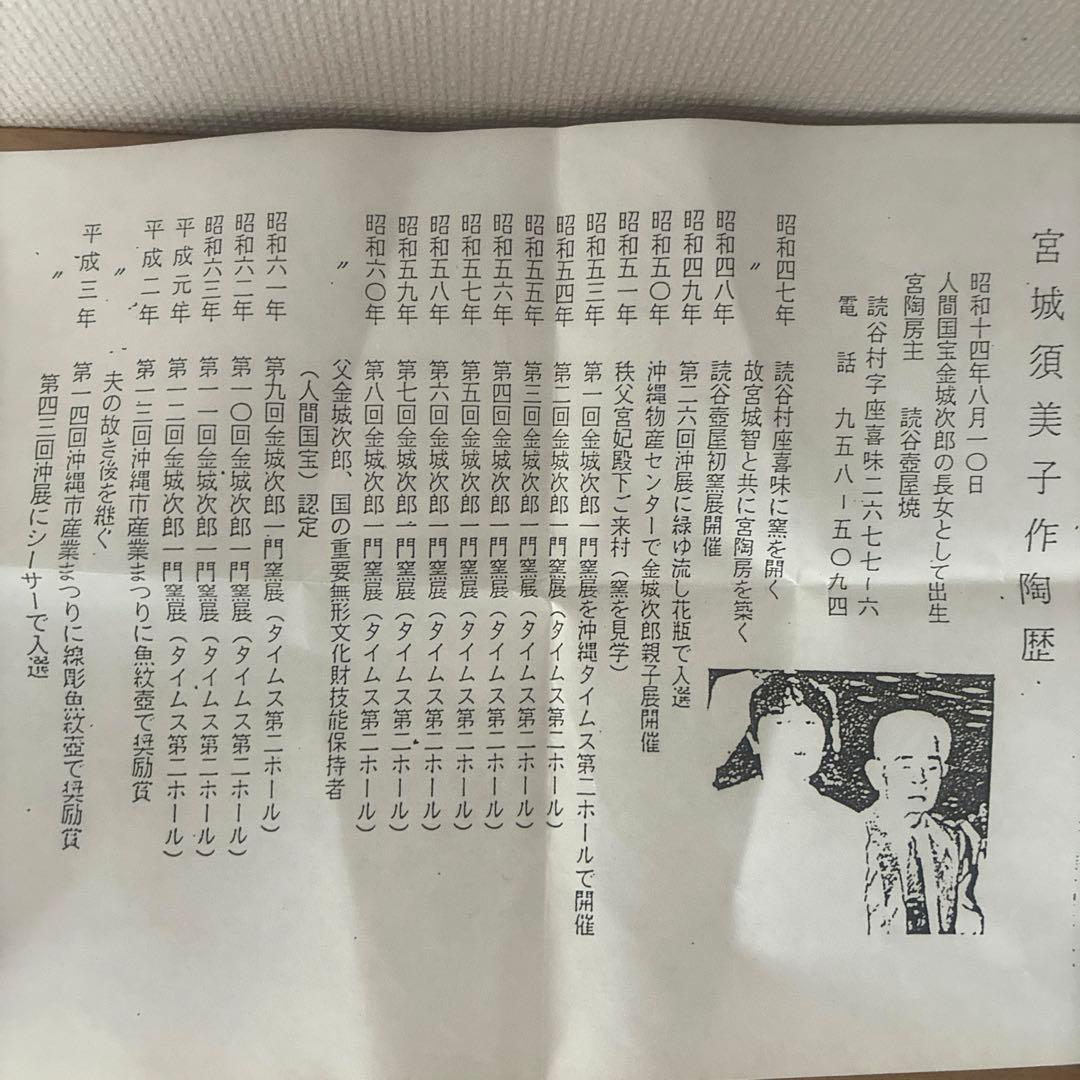 宮城須美子作陶歴
昭和十四年八月一〇日
人間国宝金城次郎の長女として出生
宮陶房主　読谷壺屋焼
読谷村字座喜味二六七七ー六
電話　九五八ー五〇九四
昭和四七年　読谷村座喜味に窯を開く
〃　故宮城智と共に宮陶房を築く
昭和四八年　読谷壺屋初窯展開催
昭和四九年　第二六回沖展に緑ゆ流し花瓶で入選
昭和五〇年　沖縄物産センターで金城次郎親子展開催
昭和五一年　秩父宮妃殿下ご来村（窯を見学）
昭和五三年　第一回金城次郎一門窯展を沖縄タイムス第二ホールで開催
昭和五四年　第二回金城次郎一門窯展（タイムス第二ホール）
昭和五五年　第三回金城次郎一門窯展（タイムス第二ホール）
昭和五六年　第四回金城次郎一門窯展（タイムス第二ホール）
昭和五七年　第五回金城次郎一門窯展（タイムス第二ホール）
昭和五八年　第六回金城次郎一門窯展（タイムス第二ホール）
昭和五九年　第七回金城次郎一門窯展（タイムス第二ホール）
昭和六〇年　第八回金城次郎一門窯展（タイムス第二ホール）
〃　父金城次郎、国の重要無形文化財技能保持者
（人間国宝）認定
昭和六一年　第九回金城次郎一門窯展（タイムス第二ホール）
昭和六二年　第一〇回金城次郎一門窯展（タイムス第二ホール）
昭和六三年　第一一回金城次郎一門窯展（タイムス第二ホール）
平成元年　第一二回金城次郎一門窯展（タイムス第二ホール）
平成二年　第一三回沖縄市産業まつりに魚紋壺で奨励賞
〃　夫の故き後を継ぐ
平成三年　第一四回沖縄市産業まつりに線彫魚紋壺で奨励賞
〃　第四三回沖展にシーサーで入選